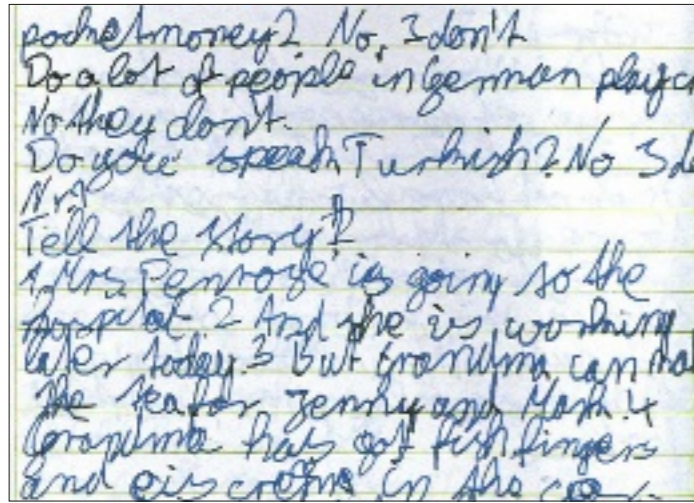 pocketmoney? No, I don't
Do a lot of people in German play
No they don't.
Do you speak Turkish? No I do
Nr. 1
Tell the story!
1. Mrs Penrose is going to the
hospital 2 And she is working
later today. 3 But Grandma can
the tea for Jenny and Mark 4
Grandma has got fishfingers
and in the